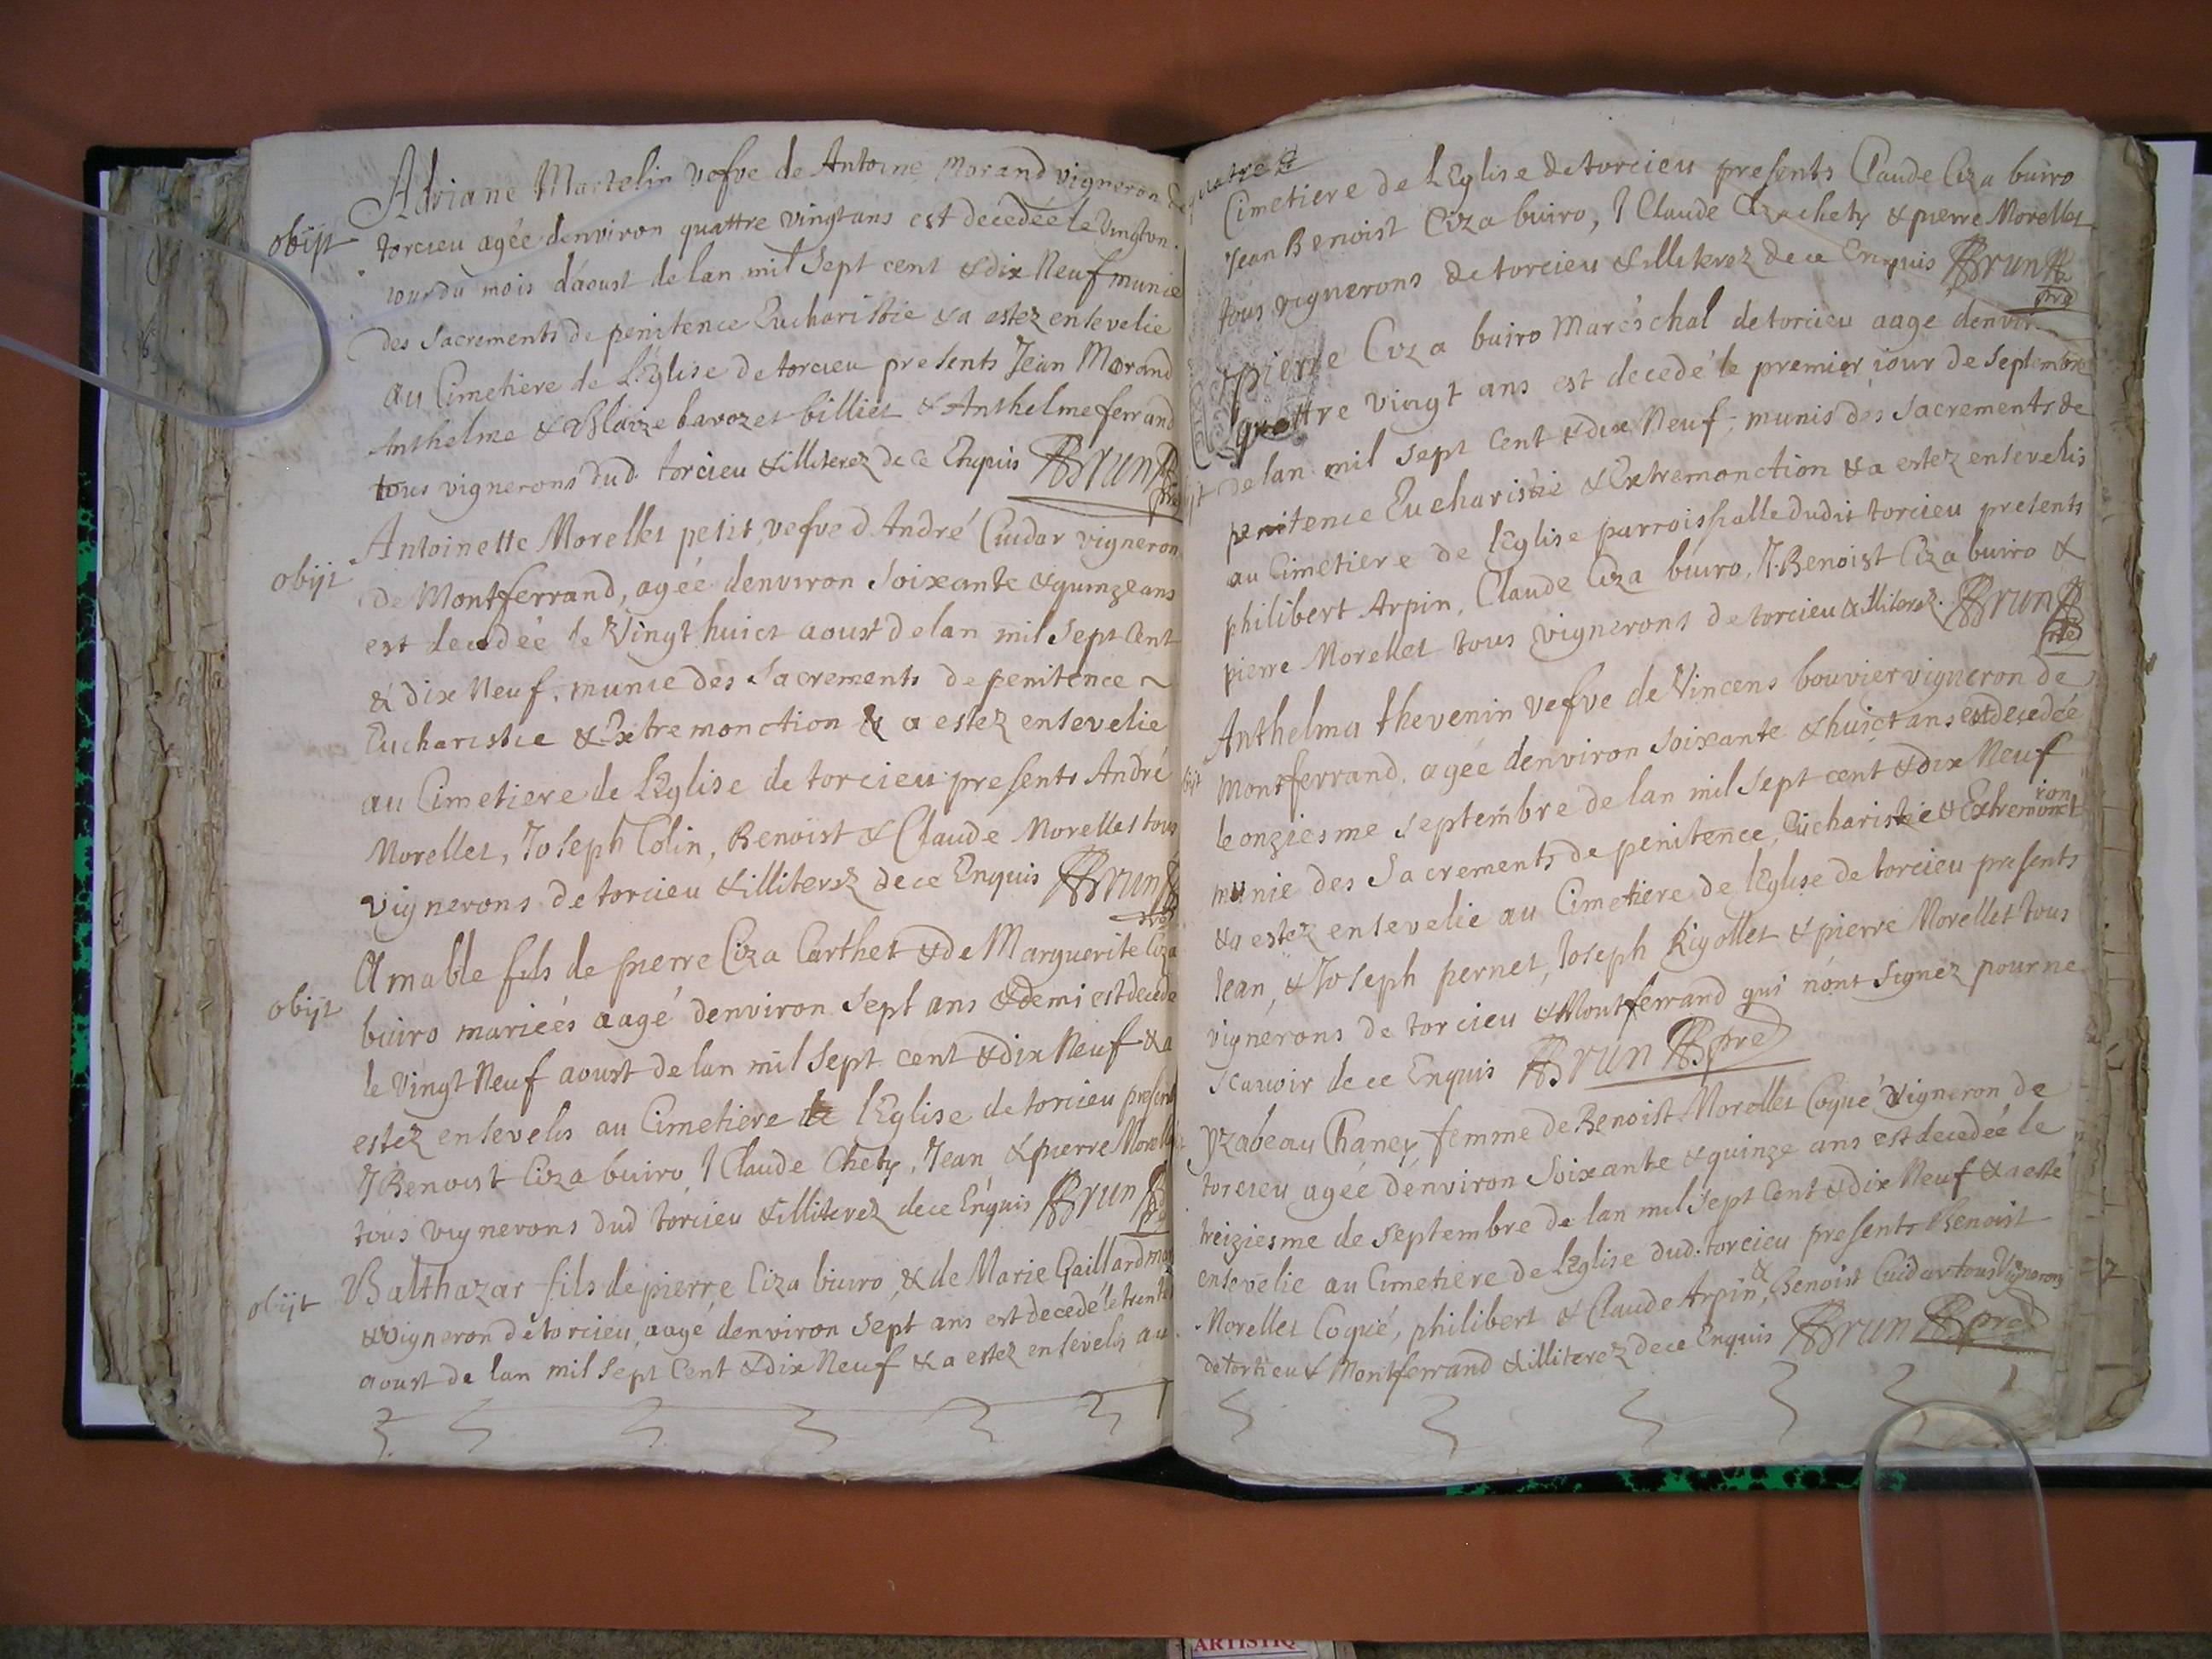 Adriane Martelin vefve de Antoine Morand vigneron de
obijt
torcieu agée denviron quattre vingt ans est decedée le vingt un
iour du mois d'aoust de lan mil sept cent & dix Neuf munie
des Sacrements de penitence Eucharistie & a estez ensevelie
au Cimetiere de L'Eglise de torcieu presents Jean Morand
Anthelme & Blaize bavozet billiet & Anthelme ferrand
tous vignerons dud. torcieu & illiterez de ce Enquis Brun pre
Antoinette Morellet petit, vefve d'André Cuidar vigneron
obijt
de Montferrand, agée denviron Soixante & quinze ans
est decedée le Vingt huict aoust de lan mil Sept Cent
& dix Neuf, munie des Sacrements de penitence ~
Eucharistie & Extremonction & a estez ensevelie
au Cimetiere de L'Eglise de torcieu presents André
Morellet, Joseph Colin, Benoist & Claude Morellet tous
vignerons de torcieu & illiterez de ce Enquis Brun pre
Amable fils de pierre Ciza Carthet & de Marguerite Ciza
obijt
buiro mariées aagé denviron Sept ans & demi est decede
le Vingt Neuf aoust de lan mil Sept cent & dix Neuf & a
estez ensevelis au Cimetiere de l'Eglise de torcieu present
J Benoist Ciza buiro, J Claude Chety, Jean & pierre Morellet
tous vignerons dud torcieu & illiterez de ce Enquis Brun pre
Balthazar fils de pierre Ciza buiro, & de Marie Gaillard
obijt
& Vigneron de torcieu, aagé denviron Sept ans est decedé le trente
aoust de lan mil Sept Cent & dix Neuf & a estez ensevelis au
Cimetiere de L'Eglise de torcieu presents Claude Ciza buiro
Jean Benoist Ciza buiro, J Claude Chety & pierre Morellet
tous vignerons de torcieu & illiterez de ce Enquis Brun pre
pierre Ciza buiro Maréschal de torcieu aagé denviron
quattre vingt ans est decedé le premier iour de Septembre
de lan mil Sept Cent & dix Neuf, munis des Sacrements de
penitence Eucharistie & Extremonction & a estez ensevelis
au Cimetiere de l'Eglise parroissialle dudit torcieu presents
philibert Arpin, Claude Ciza buiro, J. Benoist Ciza buiro &
pierre Morellet tous vignerons de torcieu & illiterez. Brun pre
Anthelma thevenin vefve de Vincens bouvier vigneron de
Montferrand, agée denviron Soixante & huict ans est decedée
le onziesme Septembre de lan mil Sept cent & dix Neuf
munie des Sacrements de penitence, Eucharistie & Extremonction
& a estez ensevelie au Cimetiere de l'Eglise de torcieu presents
Jean, & Joseph pernet, Joseph Rigollet & pierre Morellet tous
vignerons de torcieu & Montferrand qui n'ont Signez pour ne
Scavoir de ce Enquis Brun pre
Yzabeau Chaney femme de Benoist Morellet Coqué Vigneron de
torcieu agée denviron Soixante & quinze ans est decedeé le
treiziesme de Septembre de lan mil Sept Cent & dix Neuf & a esté
ensevelie au Cimetiere de L'Eglise dud. torcieu presents Benoist
Morellet Coqué, philibert & Claude Arpin, & Benoist Cuidar tous Vignerons
de torcieu & Montferrand & illiterez de ce Enquis Brun pre
ARTISTIQ